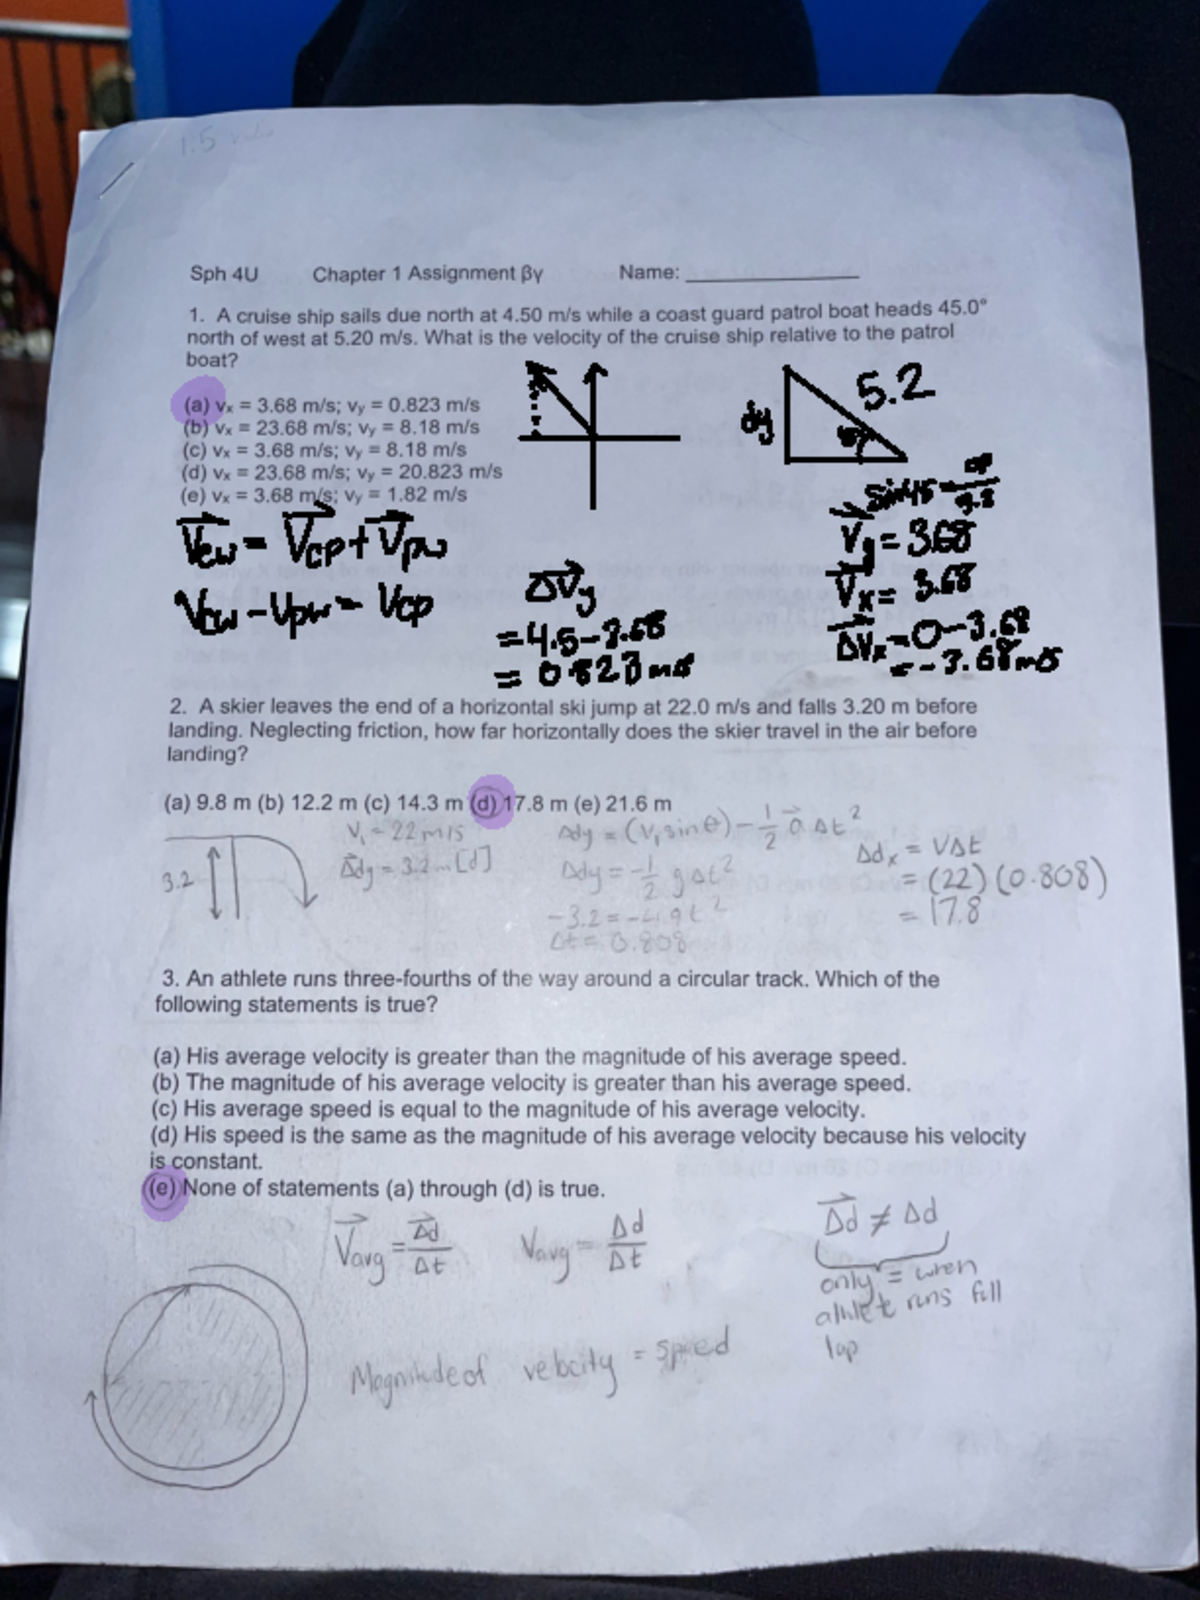 1.5
Sph 4U Chapter 1 Assignment βγ Name: ____________
1. A cruise ship sails due north at 4.50 m/s while a coast guard patrol boat heads 45.0°
north of west at 5.20 m/s. What is the velocity of the cruise ship relative to the patrol
boat?
(a) vx = 3.68 m/s; vy = 0.823 m/s
(b) vx = 23.68 m/s; vy = 8.18 m/s
(c) vx = 3.68 m/s; vy = 8.18 m/s
(d) vx = 23.68 m/s; vy = 20.823 m/s
(e) vx = 3.68 m/s; vy = 1.82 m/s
dy
5.2
45°
sin45 =
Vy = 3.68
Vx = 3.68
ΔVx = 0 - 3.68
= -3.68 m/s
Vcw = Vcp + Vpw
Vcw - Vpw = Vcp
ΔVy
= 4.5 - 3.68
= 0.823 m/s
2. A skier leaves the end of a horizontal ski jump at 22.0 m/s and falls 3.20 m before
landing. Neglecting friction, how far horizontally does the skier travel in the air before
landing?
(a) 9.8 m (b) 12.2 m (c) 14.3 m (d) 17.8 m (e) 21.6 m
3.2
V₁ = 22 m/s
Δdy = 3.2 m [d]
Δdy = (V₁ sin θ) - 1/2 a Δt²
Δdy = -1/2 g Δt²
-3.2 = -4.9 t²
Δt = 0.808
Δdx = VΔt
= (22) (0.808)
= 17.8
3. An athlete runs three-fourths of the way around a circular track. Which of the
following statements is true?
(a) His average velocity is greater than the magnitude of his average speed.
(b) The magnitude of his average velocity is greater than his average speed.
(c) His average speed is equal to the magnitude of his average velocity.
(d) His speed is the same as the magnitude of his average velocity because his velocity
is constant.
(e) None of statements (a) through (d) is true.
Vavg = Δd/Δt
Vavg = Δd/Δt
Δd ≠ Δd
only = when
athlete runs full
lap
Magnitude of velocity = speed